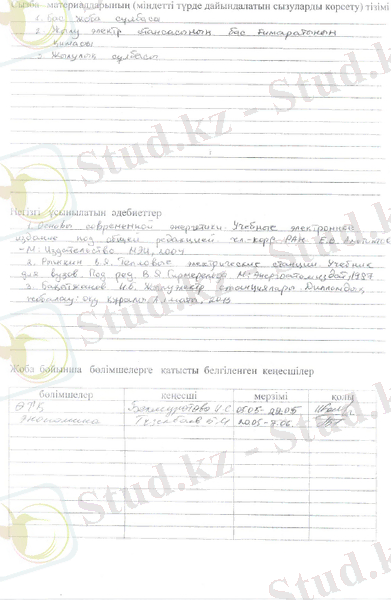 Сызба материалдарының (міндетті түрде дайындалатын сызуларды көрсету) тізімі
1. Бас жоба сұлбасы
2. Жылу электр стансасының бас ғимаратының
қимасы
3. Жылулық сұлбасы
Негізгі ұсынылатын әдебиеттер
1. Основы современной энергетики Учебное электронное
издание под общей редакцией чл-корр РАН Е.В.
- М: Издательство МЭИ, 2004
2. Рыжкин В.Я. Тепловые электрические станции Учебник
для вузов. Под ред. В.Я Гиршфельда М: Энергоатомиздат, 1987
3. Жылу электр станциялары. Дипломдық
жобалау: Оқу құралы Алматы, 2013
Жоба бойынша бөлімшелерге қатысты белгіленген кеңесшілер
бөлімшелер кеңесші мерзімі қолы
ӨТҚ 05.05-
экономика 20.05-7.06.
Stud.kz - Stud.kz
Stud.kz - Stud.kz
Stud.kz - Stud.kz
Stud.kz